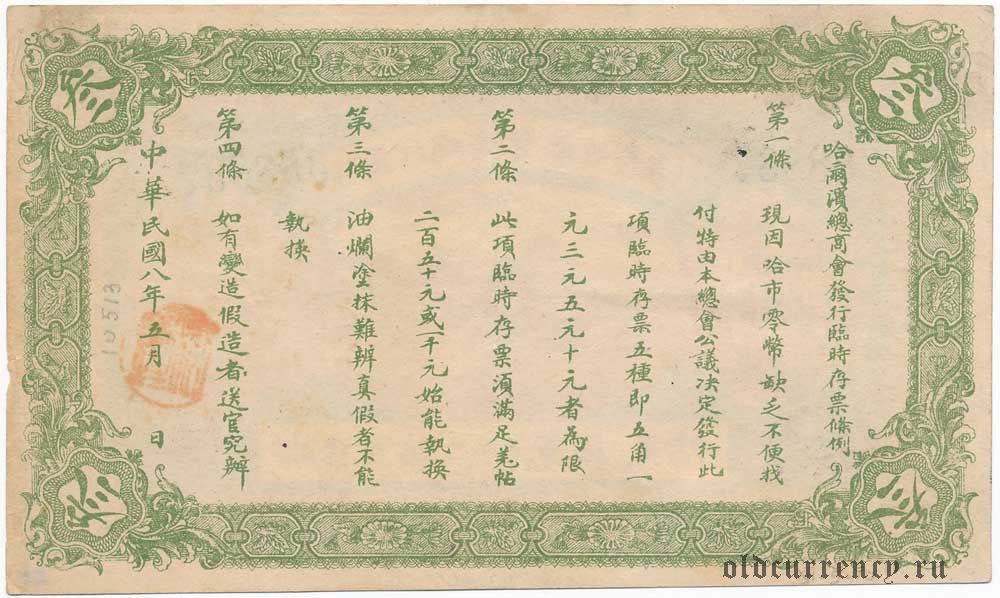 哈爾濱總商會發行臨時存票條例
第一條 現因哈市零幣缺乏不便找
付特由本總會公議决定發行此
項臨時存票五種即五角一
元三元五元十元者為限
第二條 此項臨時存票須滿足羌帖
二百五十元或一千元始能執換
第三條 油爛塗抹難辨真假者不能
執換
第四條 如有變造假造者送官究辦
中華民國八年五月 日
10513
oldcurrency.ru